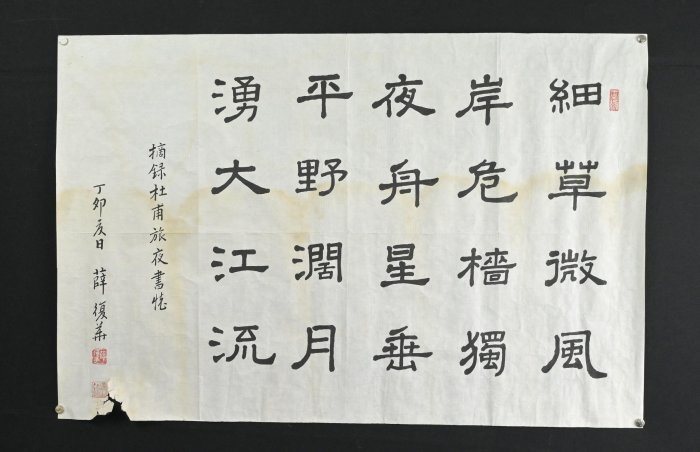 細草微風
岸危檣獨
夜舟星垂
平野濶月
湧大江流
摘録杜甫旅夜書懷
丁卯夏日 薛復華